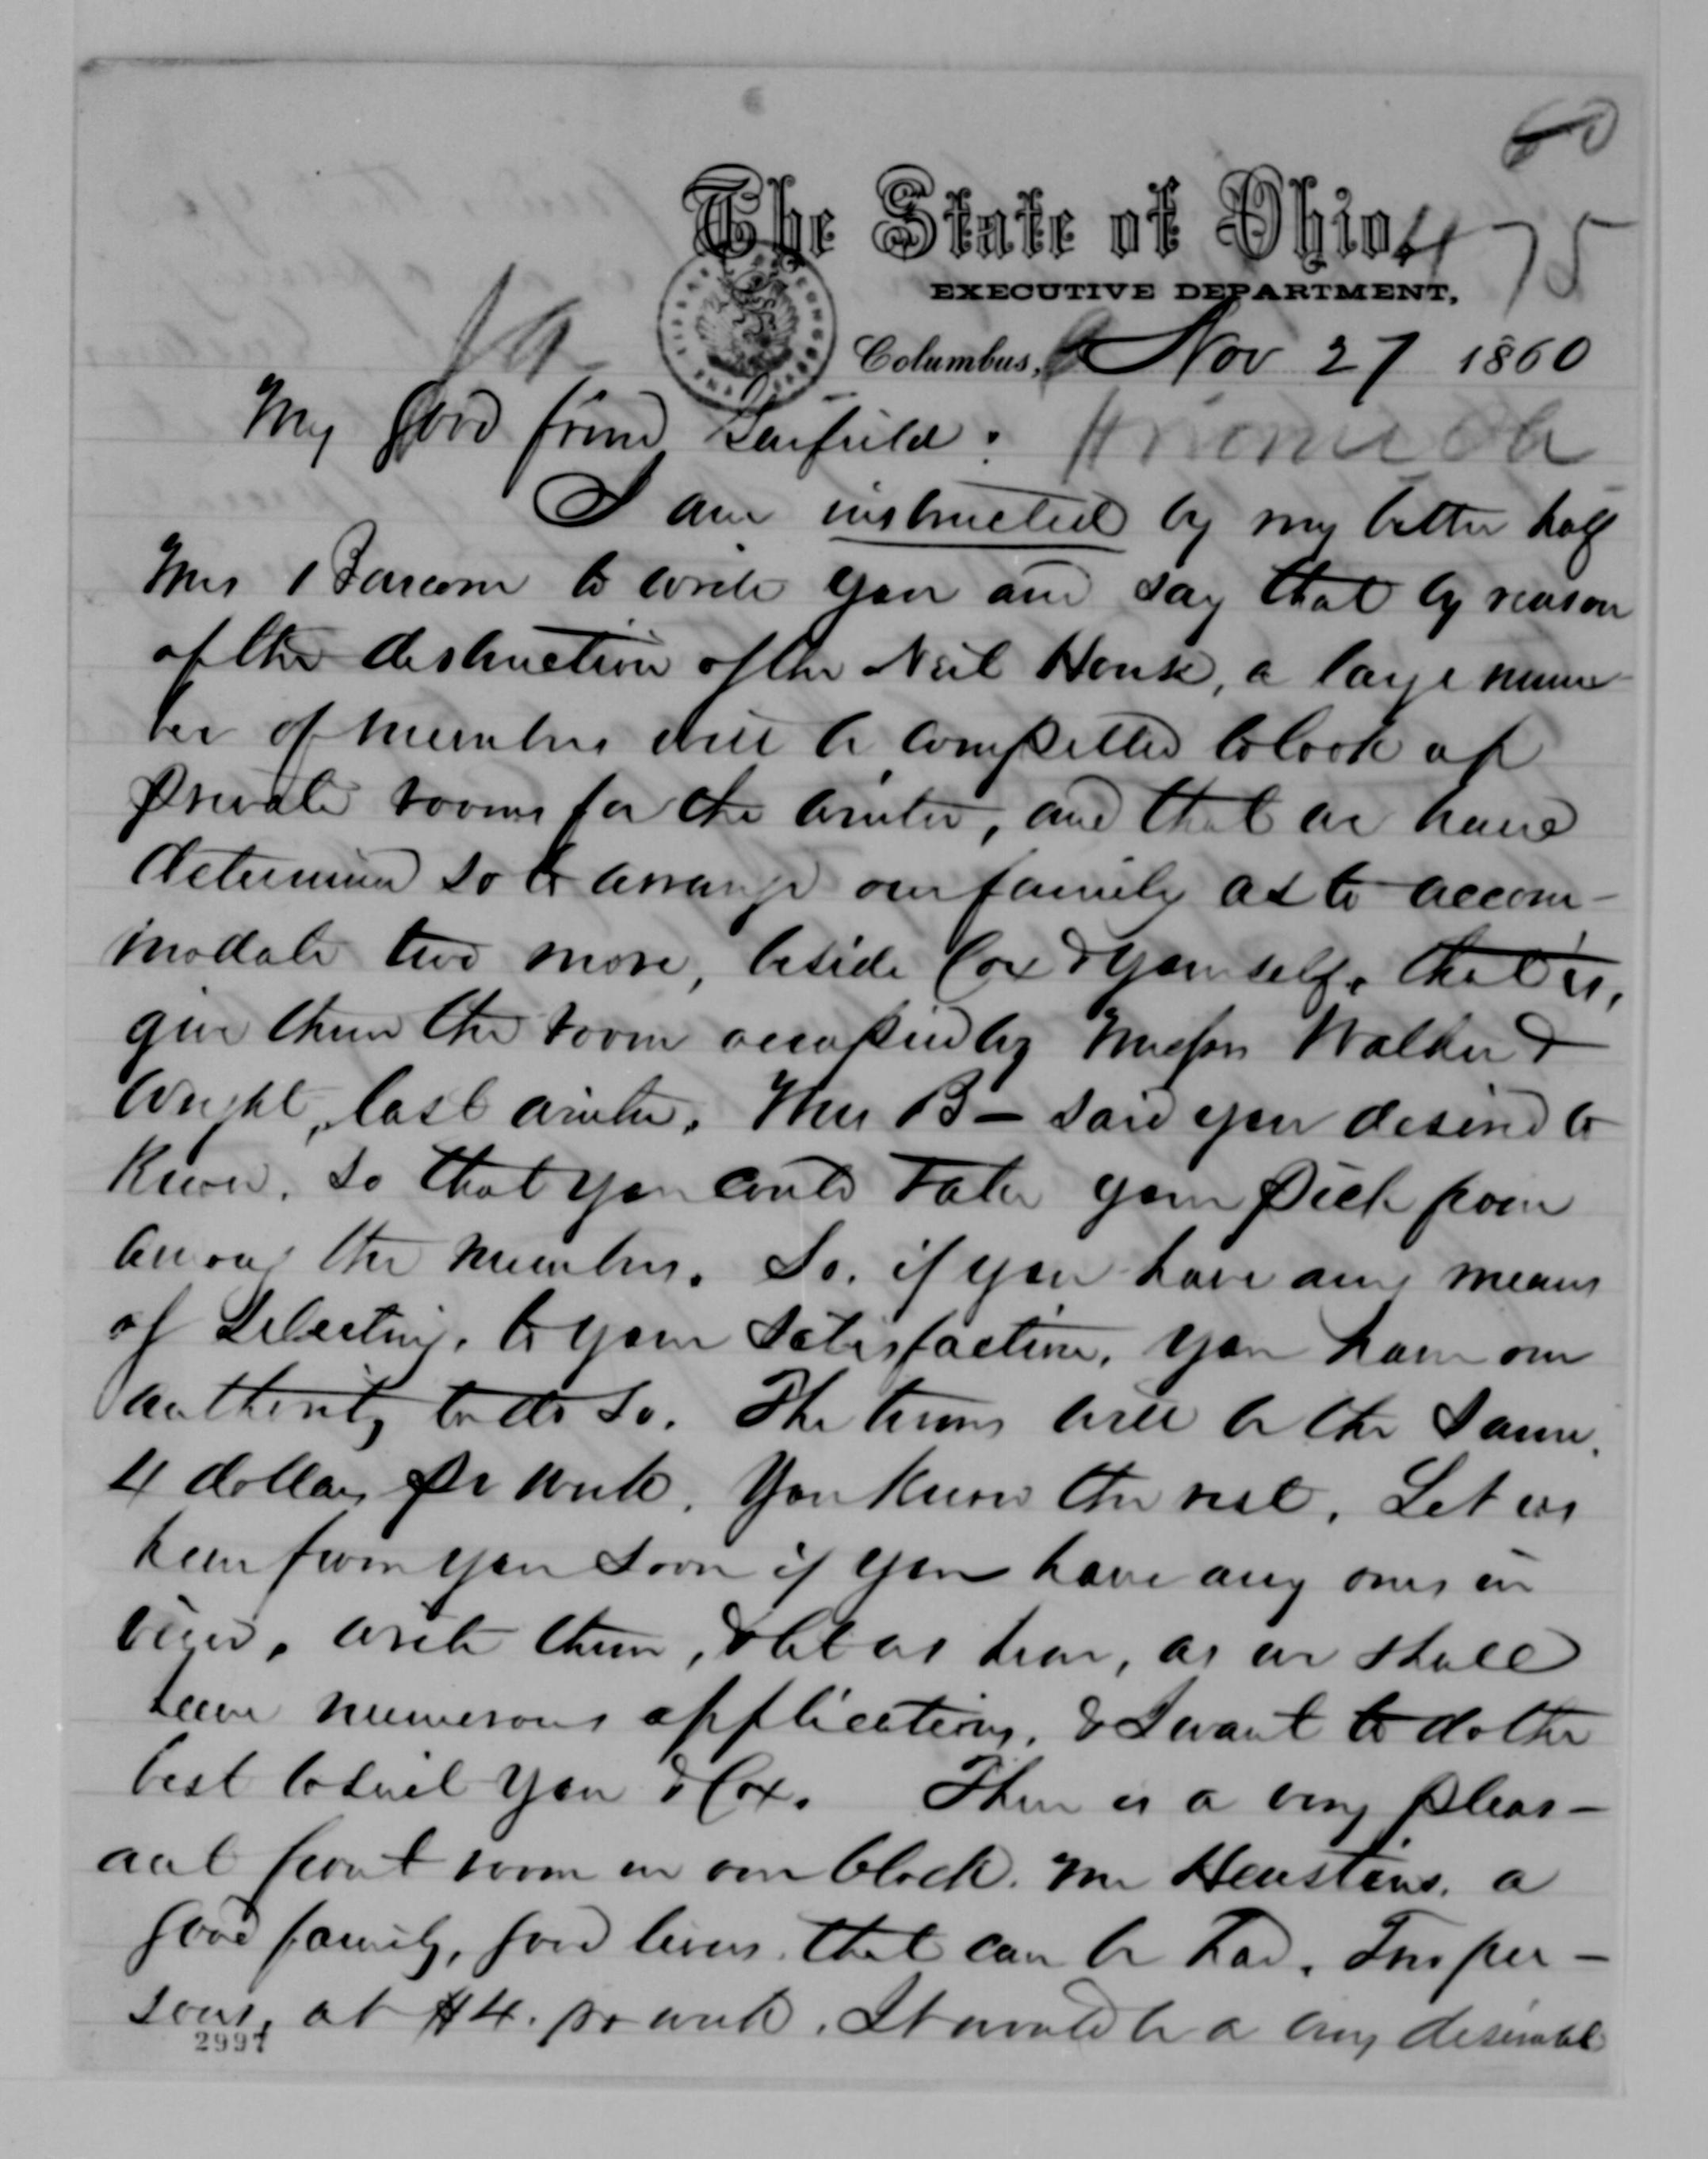 60
The State of Ohio,
475
EXECUTIVE DEPARTMENT,
Columbus, Nov 27 1860
My good friend Garfield:
I am instructed by my better half
Mrs Bascom to write you and say that by reason
of the destruction of the Neil House, a large num-
ber of members will be compelled to look up
private rooms for the winter, and that we have
determined so to arrange our family as to accom-
modate two more, beside Cox & yourself, that is,
give them the room occupied by Messrs Walker &
Wright, last winter. Mrs B— said you desired to
know, so that you could take your pick from
among the members. So, if you have any means
of selecting, to your satisfaction, you have our
authority to do so. The terms will be the same,
4 dollars pr week. You know the rest. Let us
hear from you soon if you have any ones in
view, write them, & let us hear, as we shall
have numerous applications, & I want to do the
best to suit you & Cox. There is a very pleas-
ant front room in our block. Mr a
good family, good livers that can be had, Two per-
sons, at $4. pr week. It would be a very desirable
2997